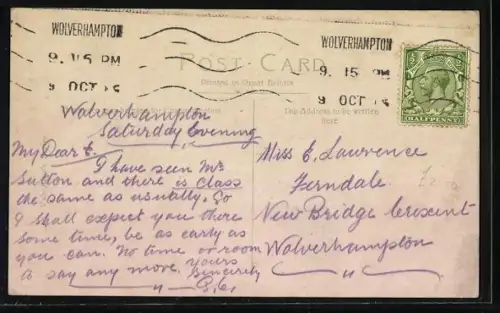 WOLVERHAMPTON
9. 15 PM
9 OCT 15
WOLVERHAMPTON
9. 15 PM
9 OCT 15
POST CARD
Printed in Great Britain
Address to be written
here
HALFPENNY
Wolverhampton
Saturday Evening
My Dear E.
I have seen Mr
Sutton and there is class
the same as usually. So
I shall expect you there
some time, be as early as
you can. No time or room
to say any more. Yours
Sincerely
Miss E. Lawrence
Ferndale
New Bridge Crescent
Wolverhampton